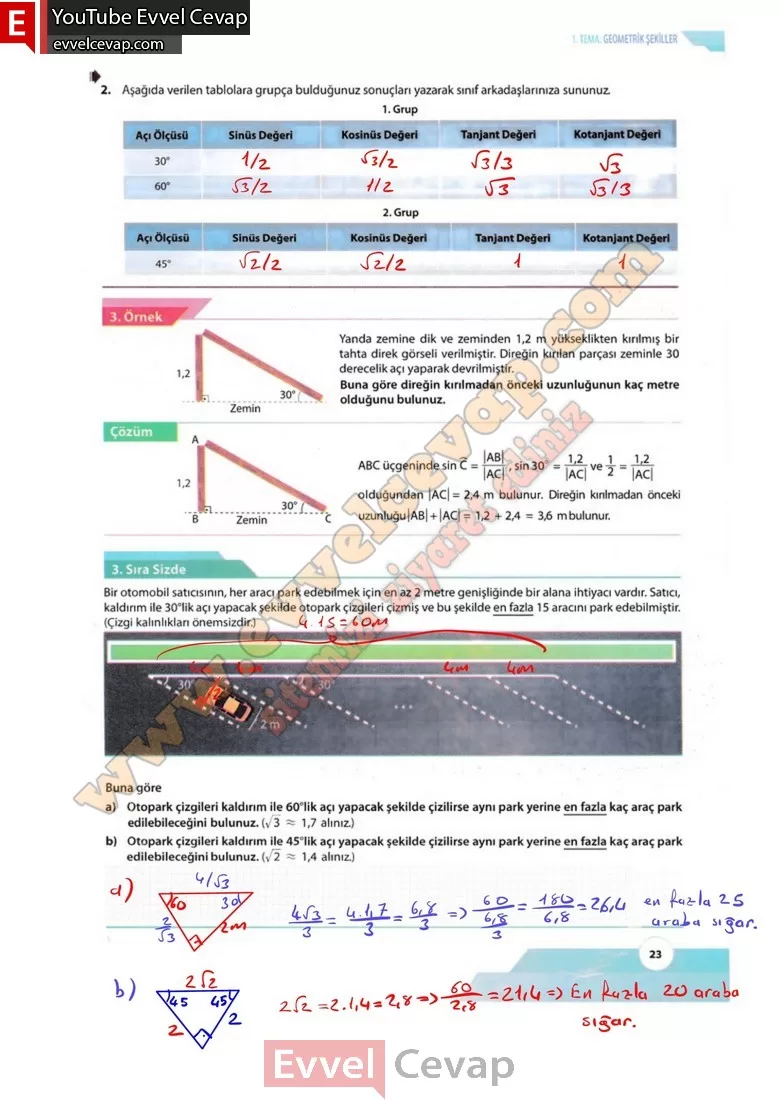 YouTube Evvel Cevap
evvelcevap.com
1. TEMA: GEOMETRİK ŞEKİLLER
2. Aşağıda verilen tablolara grupça bulduğunuz sonuçları yazarak sınıf arkadaşlarınıza sununuz.
1. Grup
Açı Ölçüsü Sinüs Değeri Kosinüs Değeri Tanjant Değeri Kotanjant Değeri
30° 1/2 √3/2 √3/3 √3
60° √3/2 1/2 √3 √3/3
2. Grup
Açı Ölçüsü Sinüs Değeri Kosinüs Değeri Tanjant Değeri Kotanjant Değeri
45° √2/2 √2/2 1 1
3. Örnek
Yanda zemine dik ve zeminden 1,2 m yükseklikten kırılmış bir
tahta direk görseli verilmiştir. Direğin kırılan parçası zeminle 30
derecelik açı yaparak devrilmiştir.
Buna göre direğin kırılmadan önceki uzunluğunun kaç metre
olduğunu bulunuz.
1,2
30°
Zemin
Çözüm
A
1,2
30°
B Zemin C
ABC üçgeninde sin C = |AB| / |AC| , sin 30° = 1,2 / |AC| ve 1/2 = 1,2 / |AC|
olduğundan |AC| = 2,4 m bulunur. Direğin kırılmadan önceki
uzunluğu |AB| + |AC| = 1,2 + 2,4 = 3,6 m bulunur.
3. Sıra Sizde
Bir otomobil satıcısının, her aracı park edebilmek için en az 2 metre genişliğinde bir alana ihtiyacı vardır. Satıcı,
kaldırım ile 30°lik açı yapacak şekilde otopark çizgileri çizmiş ve bu şekilde en fazla 15 aracını park edebilmiştir.
(Çizgi kalınlıkları önemsizdir.)
4.15=60m
4m 4m
30° 2 30°
...
2 m
Buna göre
a) Otopark çizgileri kaldırım ile 60°lik açı yapacak şekilde çizilirse aynı park yerine en fazla kaç araç park
edilebileceğini bulunuz. (√3 ≈ 1,7 alınız.)
b) Otopark çizgileri kaldırım ile 45°lik açı yapacak şekilde çizilirse aynı park yerine en fazla kaç araç park
edilebileceğini bulunuz. (√2 ≈ 1,4 alınız.)
a) 4/√3
60 30
2/√3 2m
4√3/3 = 4.1,7/3 = 6,8/3 => 60/(6,8/3) = 180/6,8 = 26,4 en fazla 25
araba sığar.
23
b) 2√2
45 45
2 2
2√2 = 2.1,4 = 2,8 => 60/2,8 = 21,4 => En fazla 20 araba
sığar.
www.evvelcevap.com
sitemizi ziyaret ediniz
Evvel Cevap